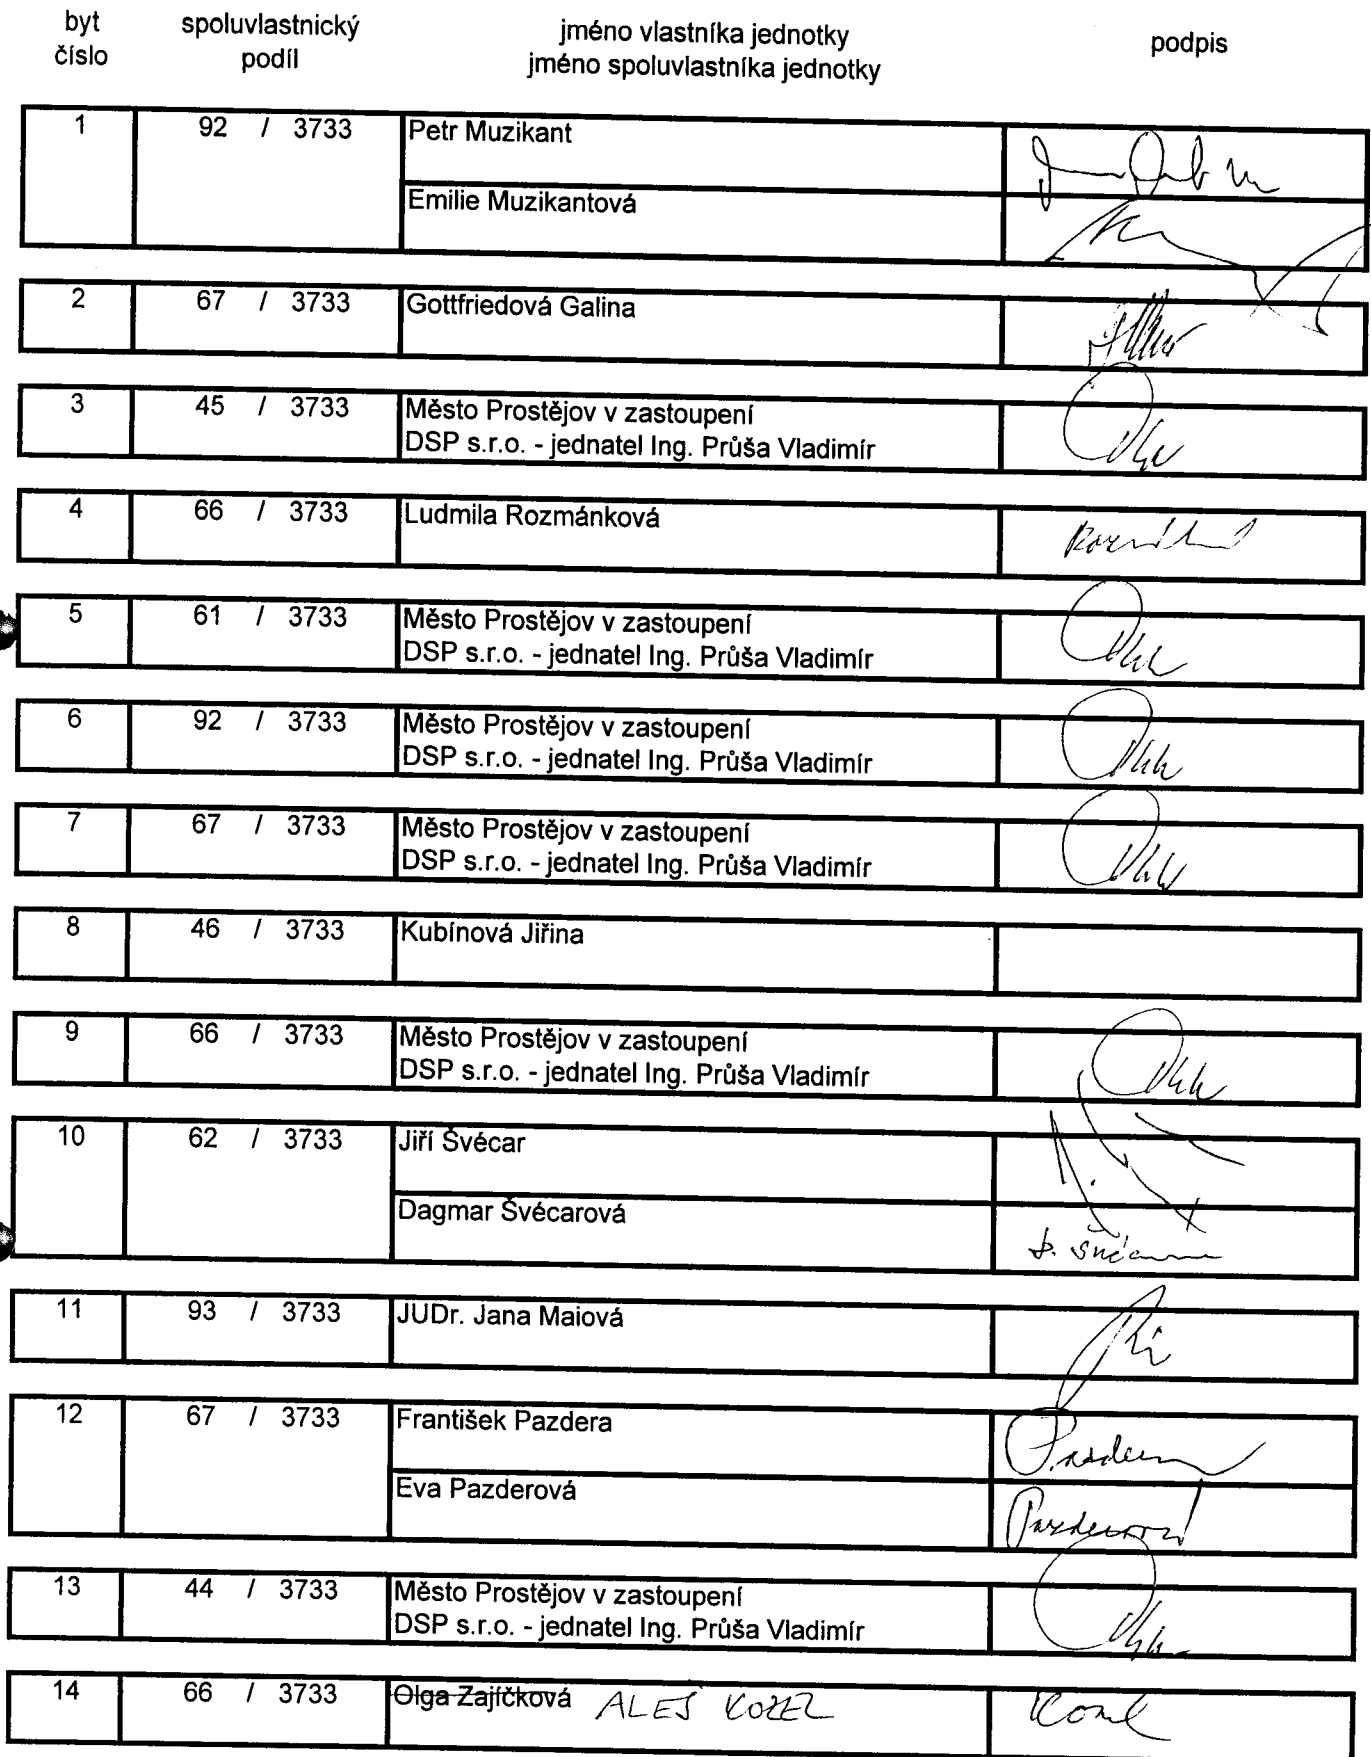 byt číslo
spoluvlastnický podíl
jméno vlastníka jednotky
jméno spoluvlastníka jednotky
podpis
1 92 / 3733 Petr Muzikant
Emilie Muzikantová
2 67 / 3733 Gottfriedová Galina
3 45 / 3733 Město Prostějov v zastoupení
DSP s.r.o. - jednatel Ing. Průša Vladimír
4 66 / 3733 Ludmila Rozmánková
5 61 / 3733 Město Prostějov v zastoupení
DSP s.r.o. - jednatel Ing. Průša Vladimír
6 92 / 3733 Město Prostějov v zastoupení
DSP s.r.o. - jednatel Ing. Průša Vladimír
7 67 / 3733 Město Prostějov v zastoupení
DSP s.r.o. - jednatel Ing. Průša Vladimír
8 46 / 3733 Kubínová Jiřina
9 66 / 3733 Město Prostějov v zastoupení
DSP s.r.o. - jednatel Ing. Průša Vladimír
10 62 / 3733 Jiří Švécar
Dagmar Švécarová
11 93 / 3733 JUDr. Jana Maiová
12 67 / 3733 František Pazdera
Eva Pazderová
13 44 / 3733 Město Prostějov v zastoupení
DSP s.r.o. - jednatel Ing. Průša Vladimír
14 66 / 3733 Olga Zajíčková ALEŠ KOZEL